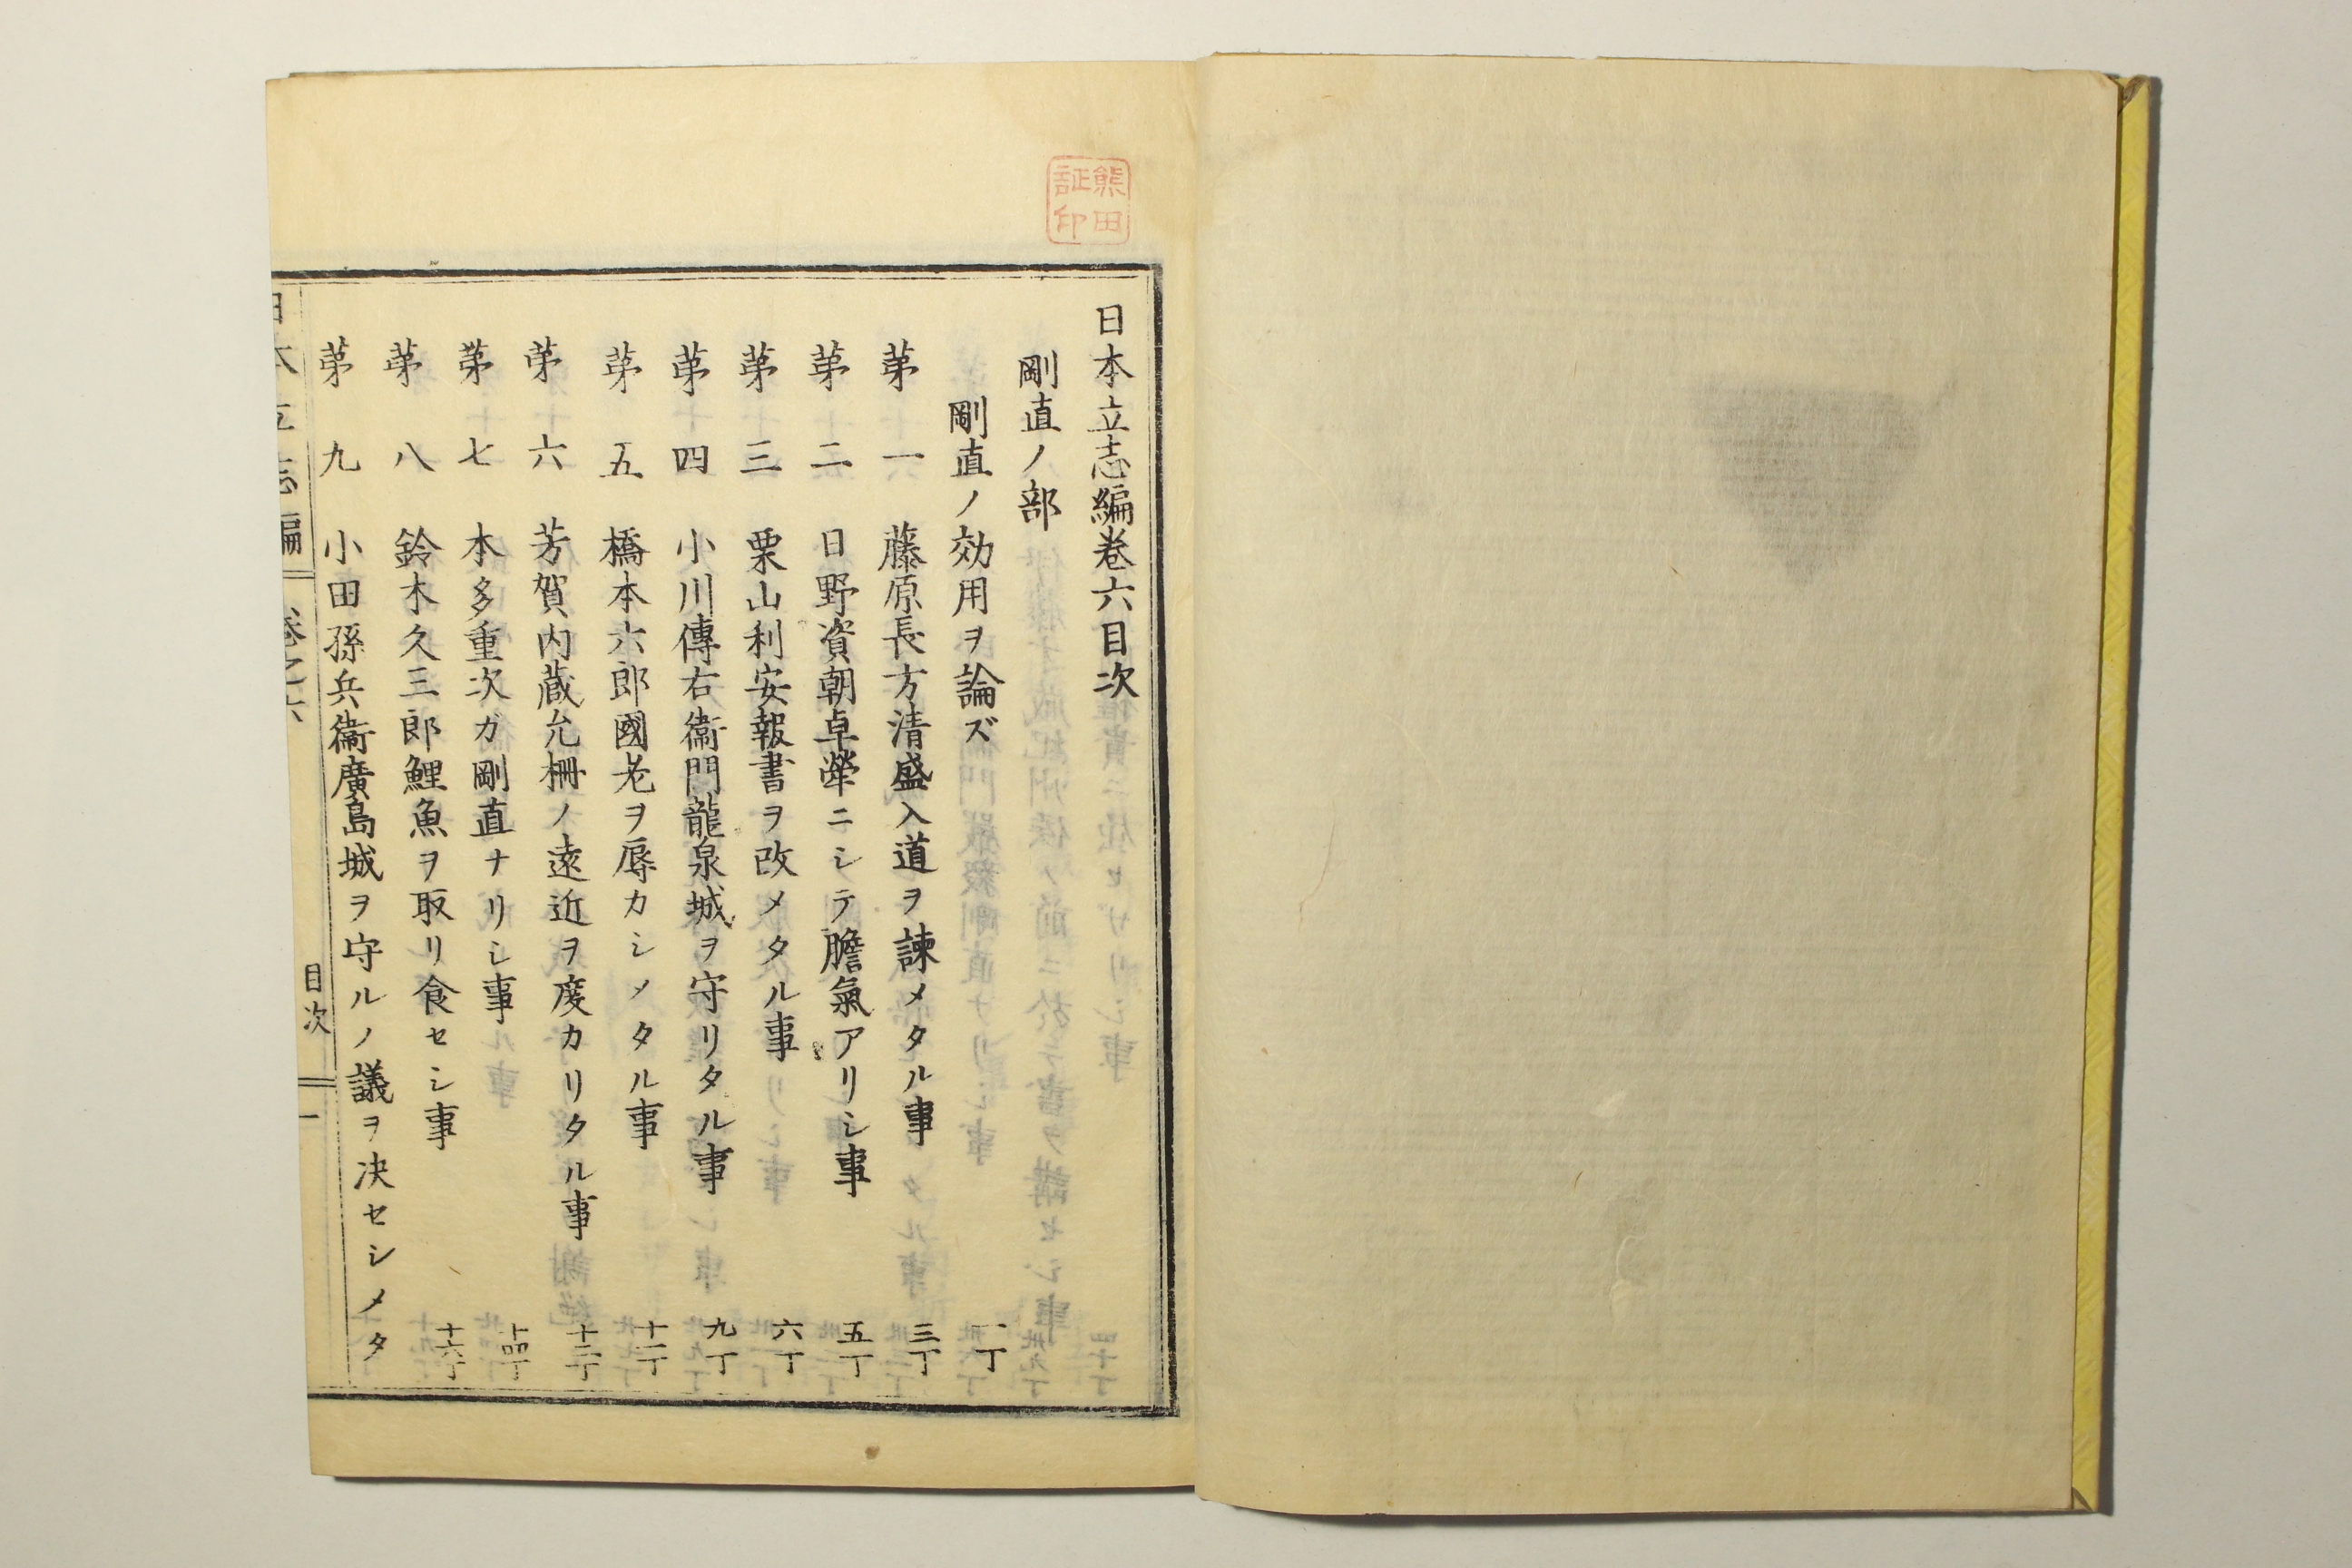 熊田
証印
日本立志編卷六目次
剛直ノ部
剛直ノ効用ヲ論ズ 一丁
苐一 藤原長方清盛入道ヲ諫メタル事 三丁
苐二 日野資朝卓犖ニシテ膽氣アリシ事 五丁
苐三 栗山利安報書ヲ改メタル事 六丁
苐四 小川傳右衞門龍泉城ヲ守リタル事 九丁
苐五 橋本六郎國老ヲ辱カシメタル事 十一丁
苐六 芳賀内蔵允柵ノ遠近ヲ度カリタル事 十二丁
苐七 本多重次ガ剛直ナリシ事 十四丁
苐八 鈴木久三郎鯉魚ヲ取リ食セシ事 十六丁
苐九 小田孫兵衞廣島城ヲ守ルノ議ヲ决セシメタ
日本立志編 卷之六 目次 一